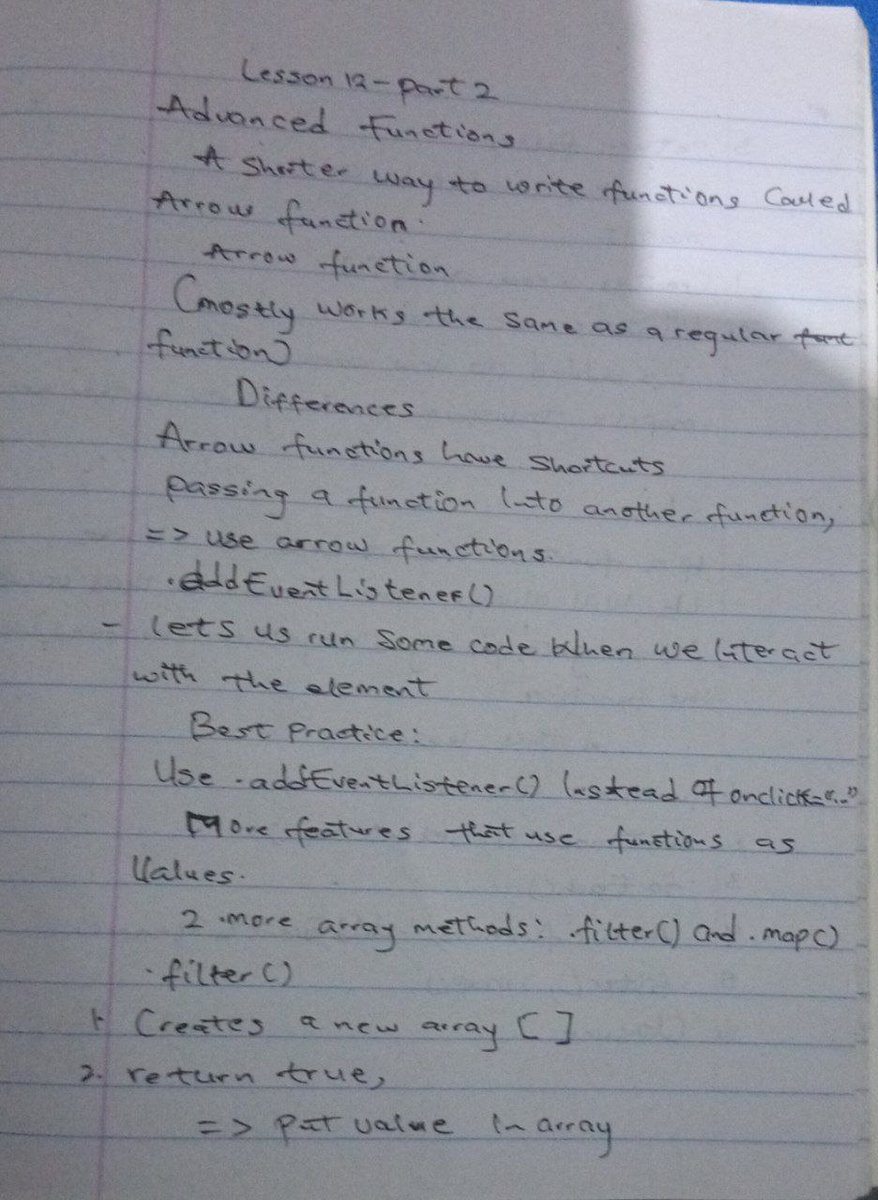 Lesson 12 - part 2
Advanced Functions
A shorter way to write functions Called
Arrow function.
Arrow function
(mostly works the same as a regular funt
function)
Differences
Arrow functions have shortcuts
passing a function into another function,
=> use arrow functions.
.addEventListener()
- lets us run some code when we interact
with the element
Best Practice:
Use .addEventListener() instead of onclick="..."
More features that use functions as
Values.
2 more array methods: .filter() and .map()
.filter()
1. Creates a new array []
2. return true,
=> put value in array